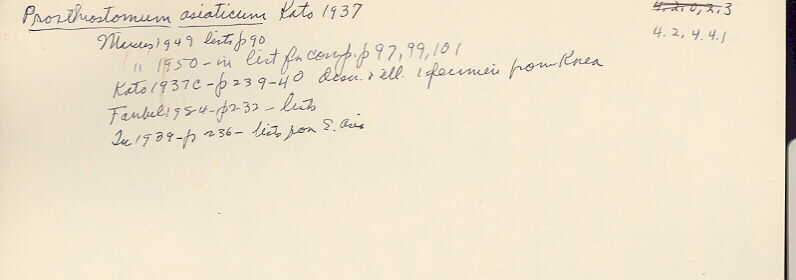 Prosthiostomum asiaticum Kato 1937
4.2.0.2.3
Marcus 1949 lists p 90
4.2.4.4.1
" 1950 - in list for comp. p 97, 99, 101
Kato 1937c - p 239-40 Descr. & ill. 1 specimen from Korea
Faubel 1984 - p 232 - lists
1939 - p 236 - lists from E. Asia